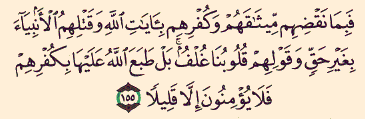 فَبِمَا نَقْضِهِم مِّيثَٰقَهُمْ وَكُفْرِهِم بِـَٔايَٰتِ ٱللَّهِ وَقَتْلِهِمُ ٱلْأَنۢبِيَآءَ
بِغَيْرِ حَقٍّ وَقَوْلِهِمْ قُلُوبُنَا غُلْفٌۢ ۚ بَلْ طَبَعَ ٱللَّهُ عَلَيْهَا بِكُفْرِهِمْ
فَلَا يُؤْمِنُونَ إِلَّا قَلِيلًا ١٥٥